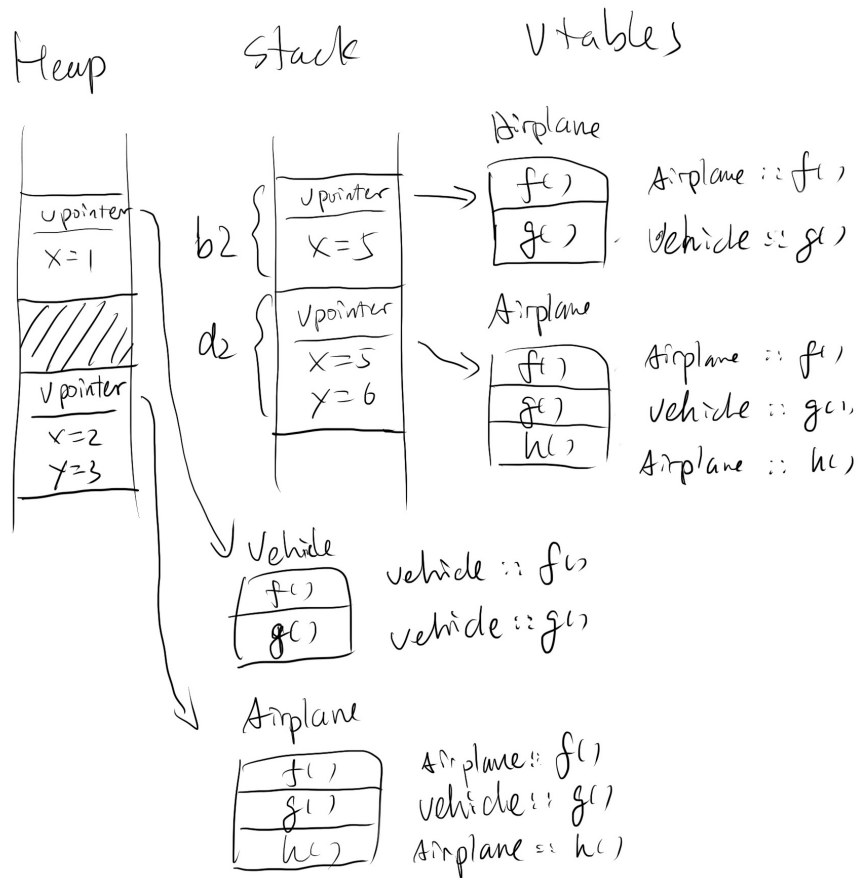 Heap
Stack
Vtables
vpointer
x=1
vpointer
x=2
y=3
b2
vpointer
x=5
d2
vpointer
x=5
y=6
Airplane
f() Airplane :: f()
g() Vehicle :: g()
Airplane
f() Airplane :: f()
g() Vehicle :: g()
h() Airplane :: h()
Vehicle
f() vehicle :: f()
g() vehicle :: g()
Airplane
f() Airplane :: f()
g() vehicle :: g()
h() Airplane :: h()